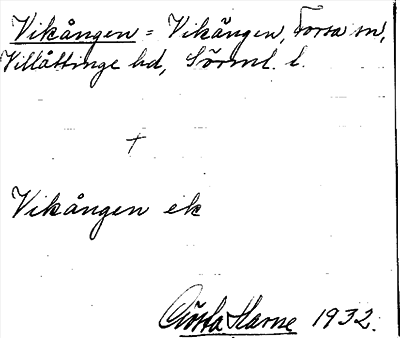 Vikången = Vikången, Forsa sn,
Villåttinge hd, Sörml. l.
+
Vikången ek
Gösta Harne 1932.